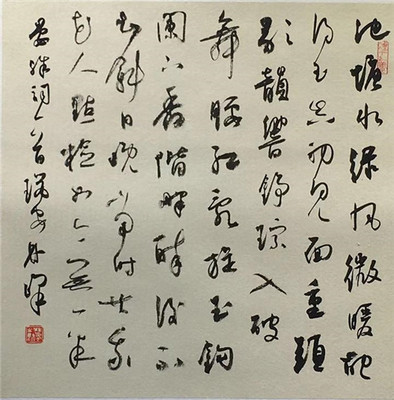 池塘水綠風微暖記
得玉真初見面重頭
歌韻響錚琮入破
舞腰紅亂旋玉鉤
闌下香階畔醉後不
知斜日晚當時共我
花人點檢如今無一半
晏殊詞一首瑞安